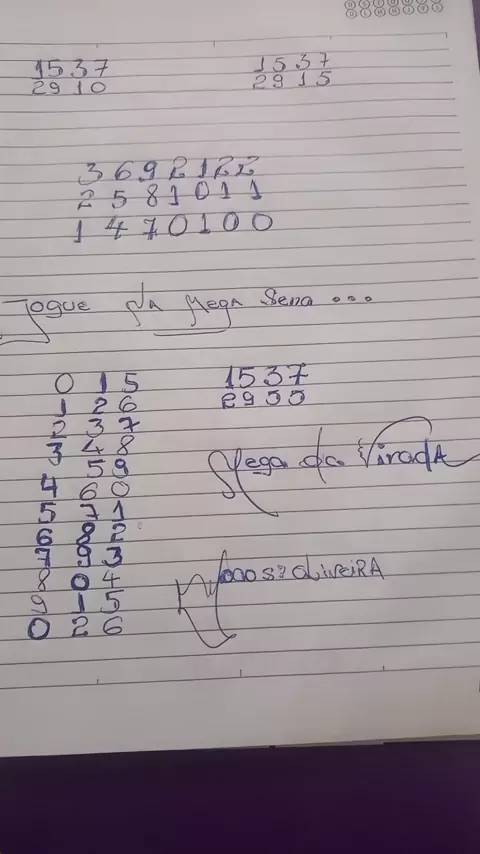 1537 1537
2910 2915
3 6 9 2 1 2 2
2 5 8 1 0 1 1
1 4 7 0 1 0 0
Jogue da Mega Sena ...
0 1 5
1 2 6
2 3 7
3 4 8
5 9
4 6 0
5 7 1
6 8 2
7 9 3
8 0 4
9 1 5
0 2 6
1537
Mega da Virada
OLiveiRA